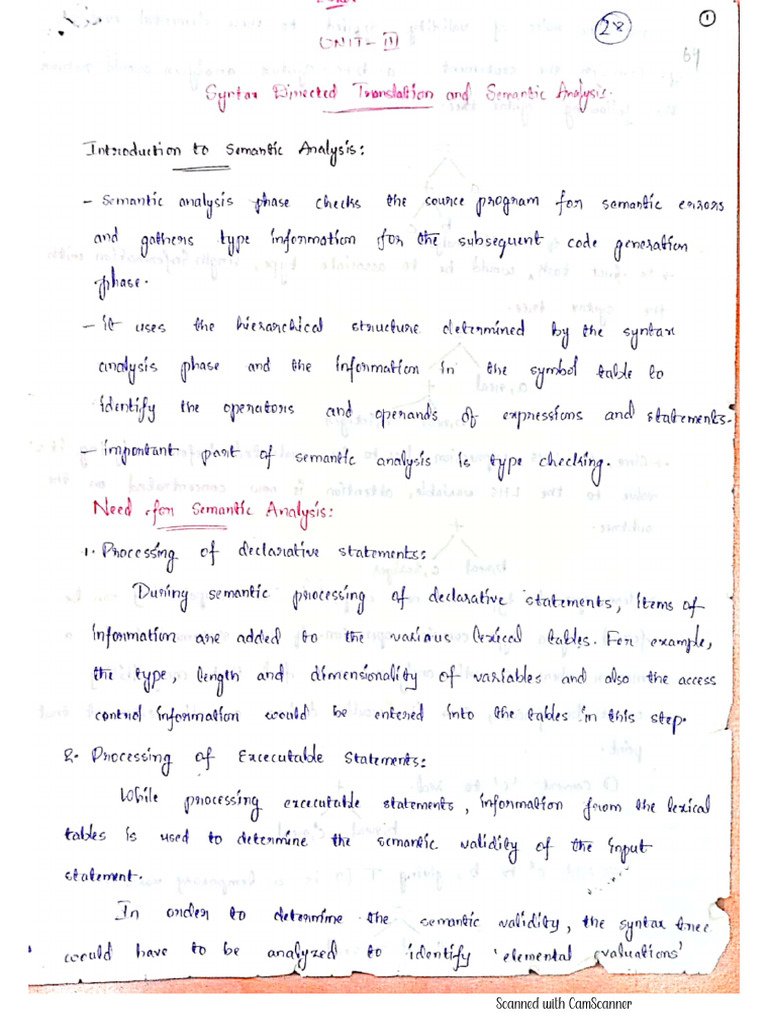 ①
28
64
UNIT-III
Syntax Directed Translation and Semantic Analysis.
Introduction to Semantic Analysis:
- Semantic analysis phase checks the source program for semantic errors
and gathers type information for the subsequent code generation
phase.
- it uses the hierarchical structure determined by the syntax
analysis phase and the information in the symbol table to
identify the operators and operands of expressions and statements.
- important part of semantic analysis is type checking.
Need for Semantic Analysis:
1. Processing of declarative statements:
During semantic processing of declarative statements, items of
information are added to the various lexical tables. For example,
the type, length and dimensionality of variables and also the access
control information would be entered into the tables in this step.
2. Processing of Excecutable Statements:
While processing excecutable statements, information from the lexical
tables is used to determine the semantic validity of the input
statement.
In order to determine the semantic validity, the syntax tree
would have to be analyzed to identify 'elemental evaluations'
Scanned with CamScanner